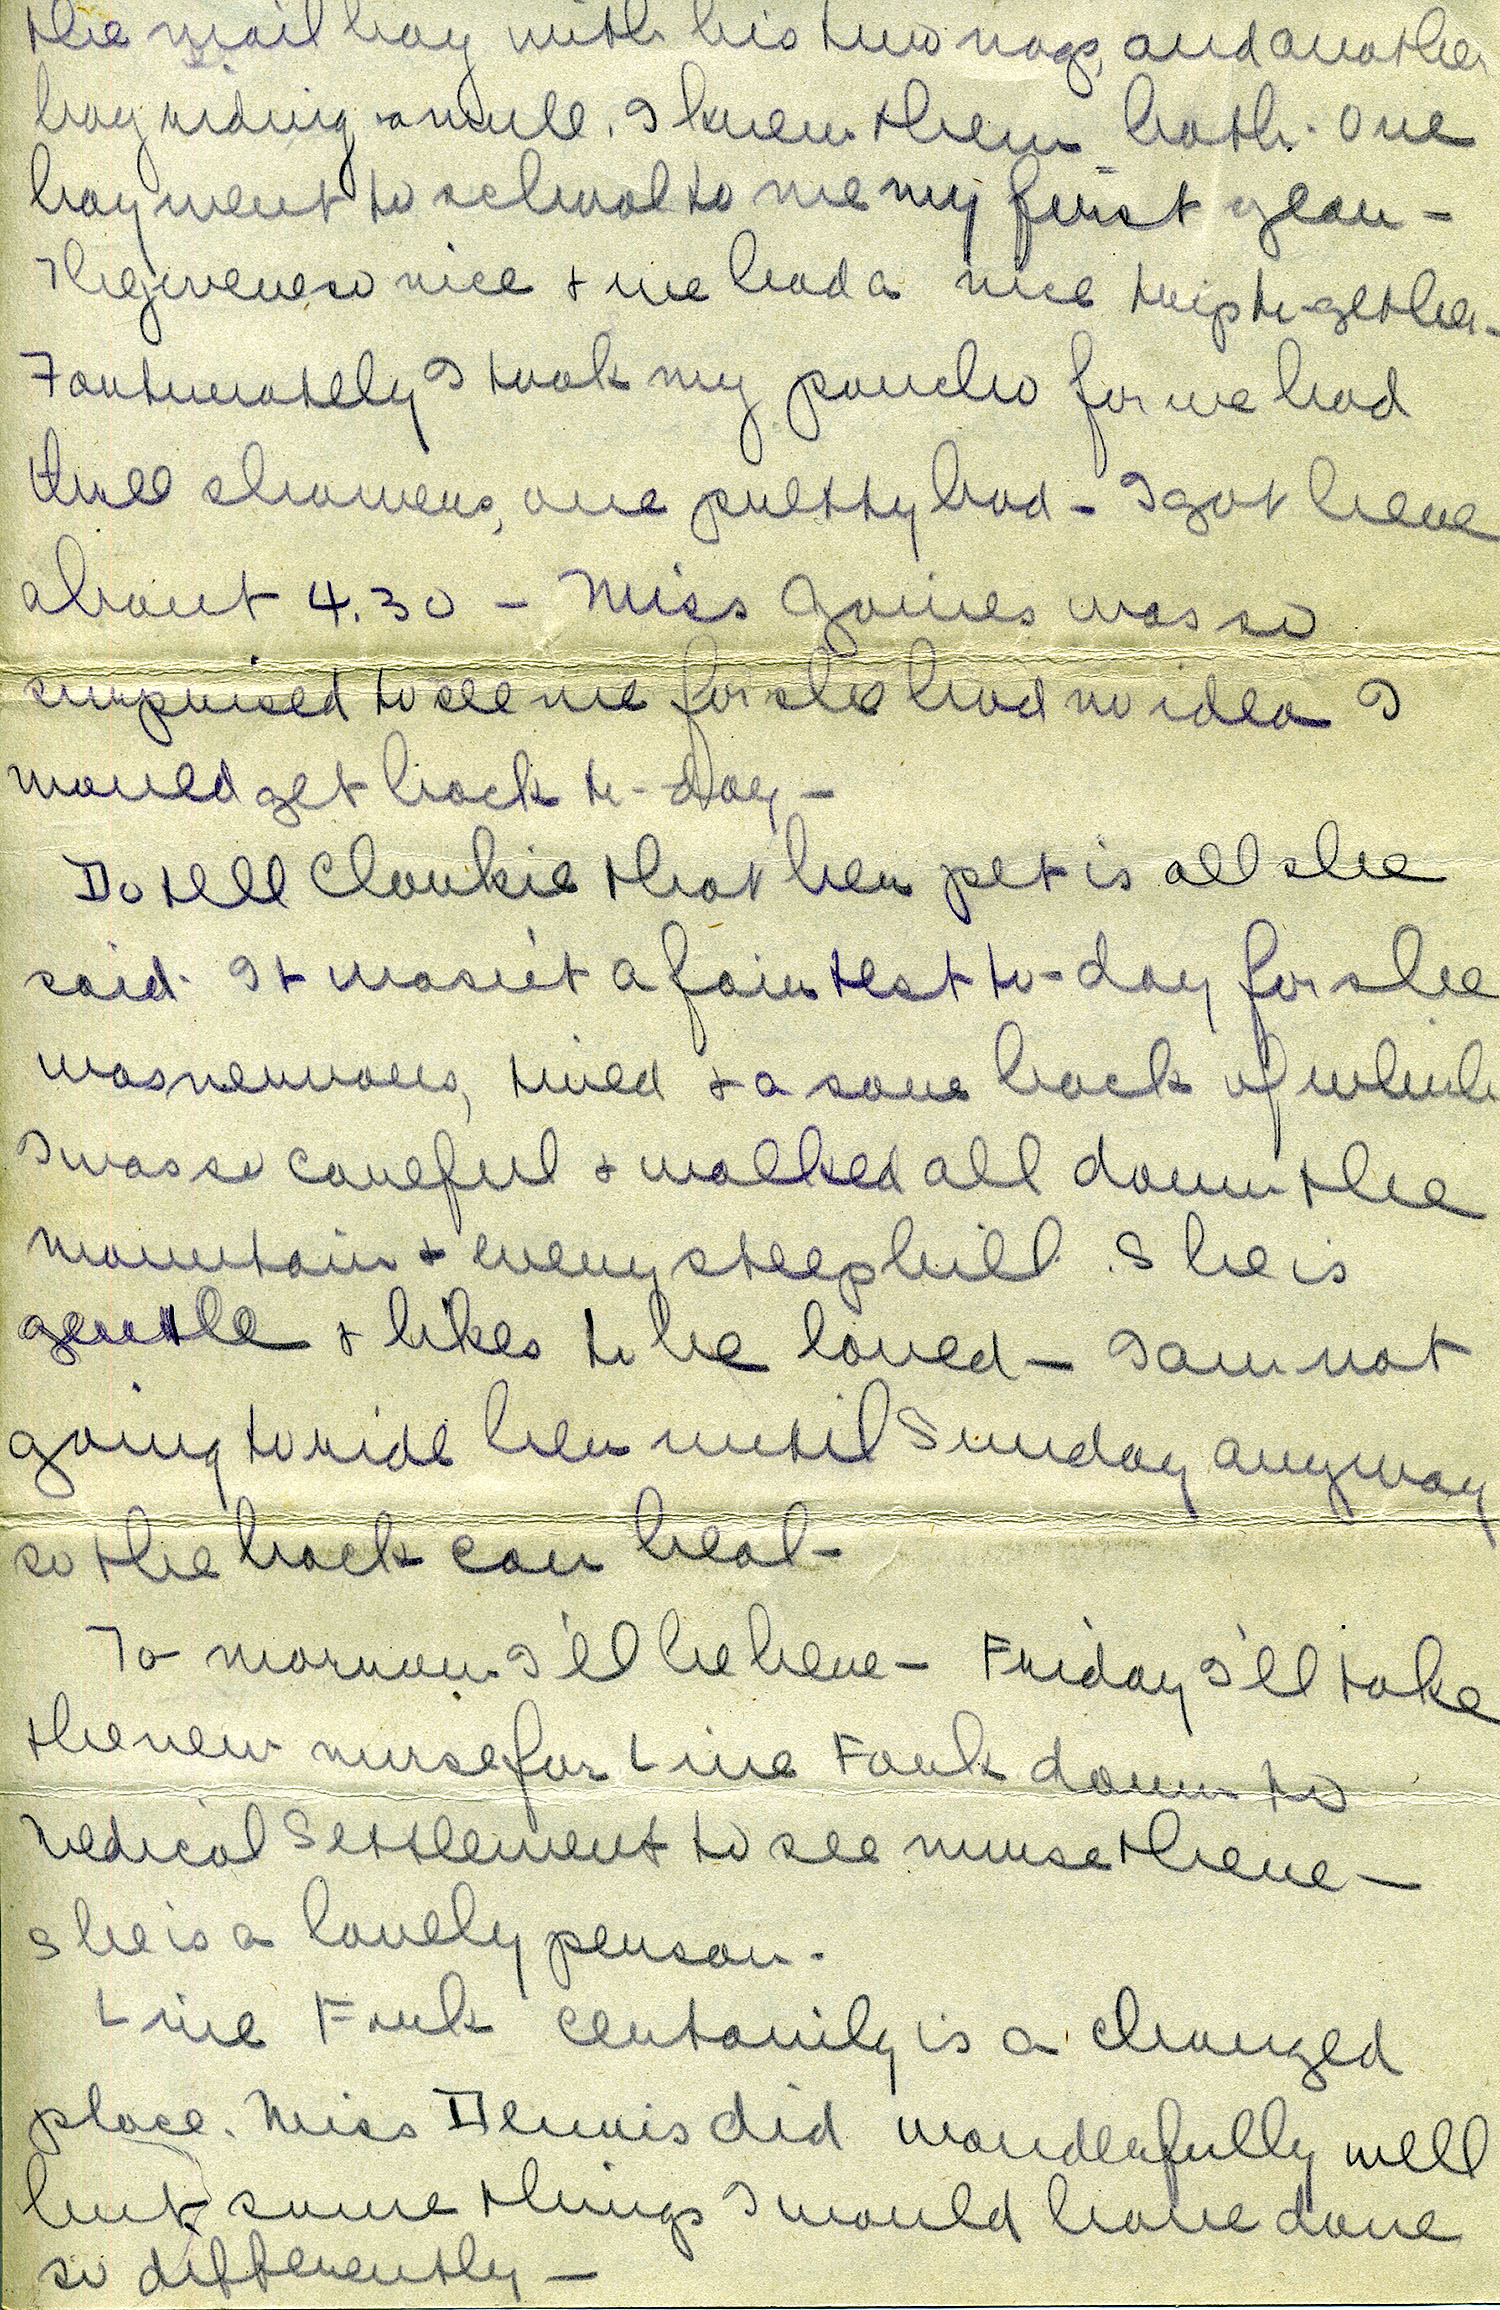 the mail boy with his two nags, and another
boy riding a mule. I knew them both. One
boy went to school to me my first year -
They were so nice & we had a nice trip to-gether -
Fortunately I took my poncho for we had
three showers, one pretty bad - I got here
about 4.30 - Miss Gaines was so
surprised to see me for she had no idea I
would get back to-day -
Do tell Clarkie that her pet is all she
said. It wasn't a fair test to-day for she
was nervous, tired & a sore back of which
I was so careful & walked all down the
mountain & every steep hill. She is
gentle & likes to be loved - I am not
going to ride her until Sunday anyway
so the back can heal -
To-morrow I'll be here - Friday I'll take
the new nurse for Line Fork down to
Medical Settlement to see nurse there -
She is a lovely person.
Line Fork certainly is a changed
place. Miss Dennis did wonderfully well
but some things I would have done
so differently -